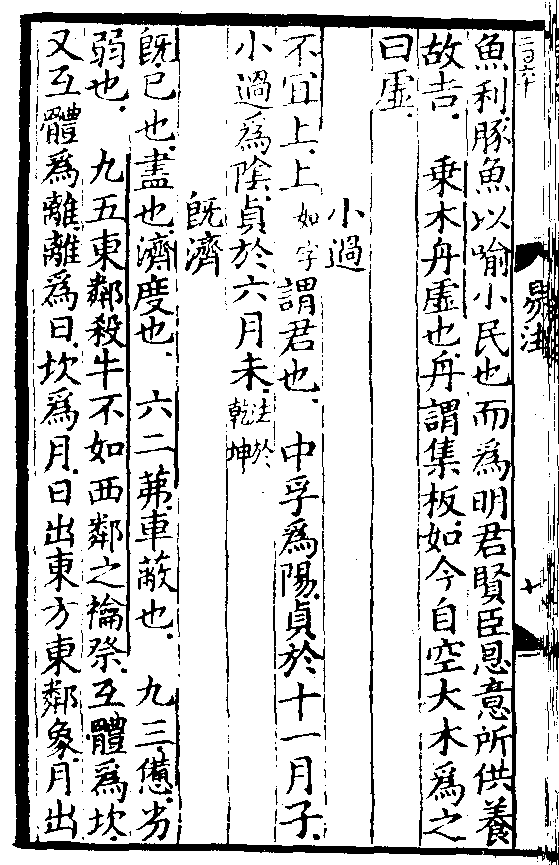 二百六十
易注
十
魚利豚魚以喻小民也而為明君賢臣恩意所供養
故吉．　乗木舟虛也．舟謂集板．如今自空大木為之
曰虛．
小過
不冝上．上如字謂君也．　中孚為陽．貞於十一月子．
小過為陰．貞於六月未．注於乾坤
旣濟
旣已也．盡也．濟度也．　六二茀．車蔽也．　九三憊．劣
弱也．　九五東鄰殺牛不如西鄰之禴祭．互體為坎．
又互體為離．離為日．坎為月．日出東方東鄰象．月出